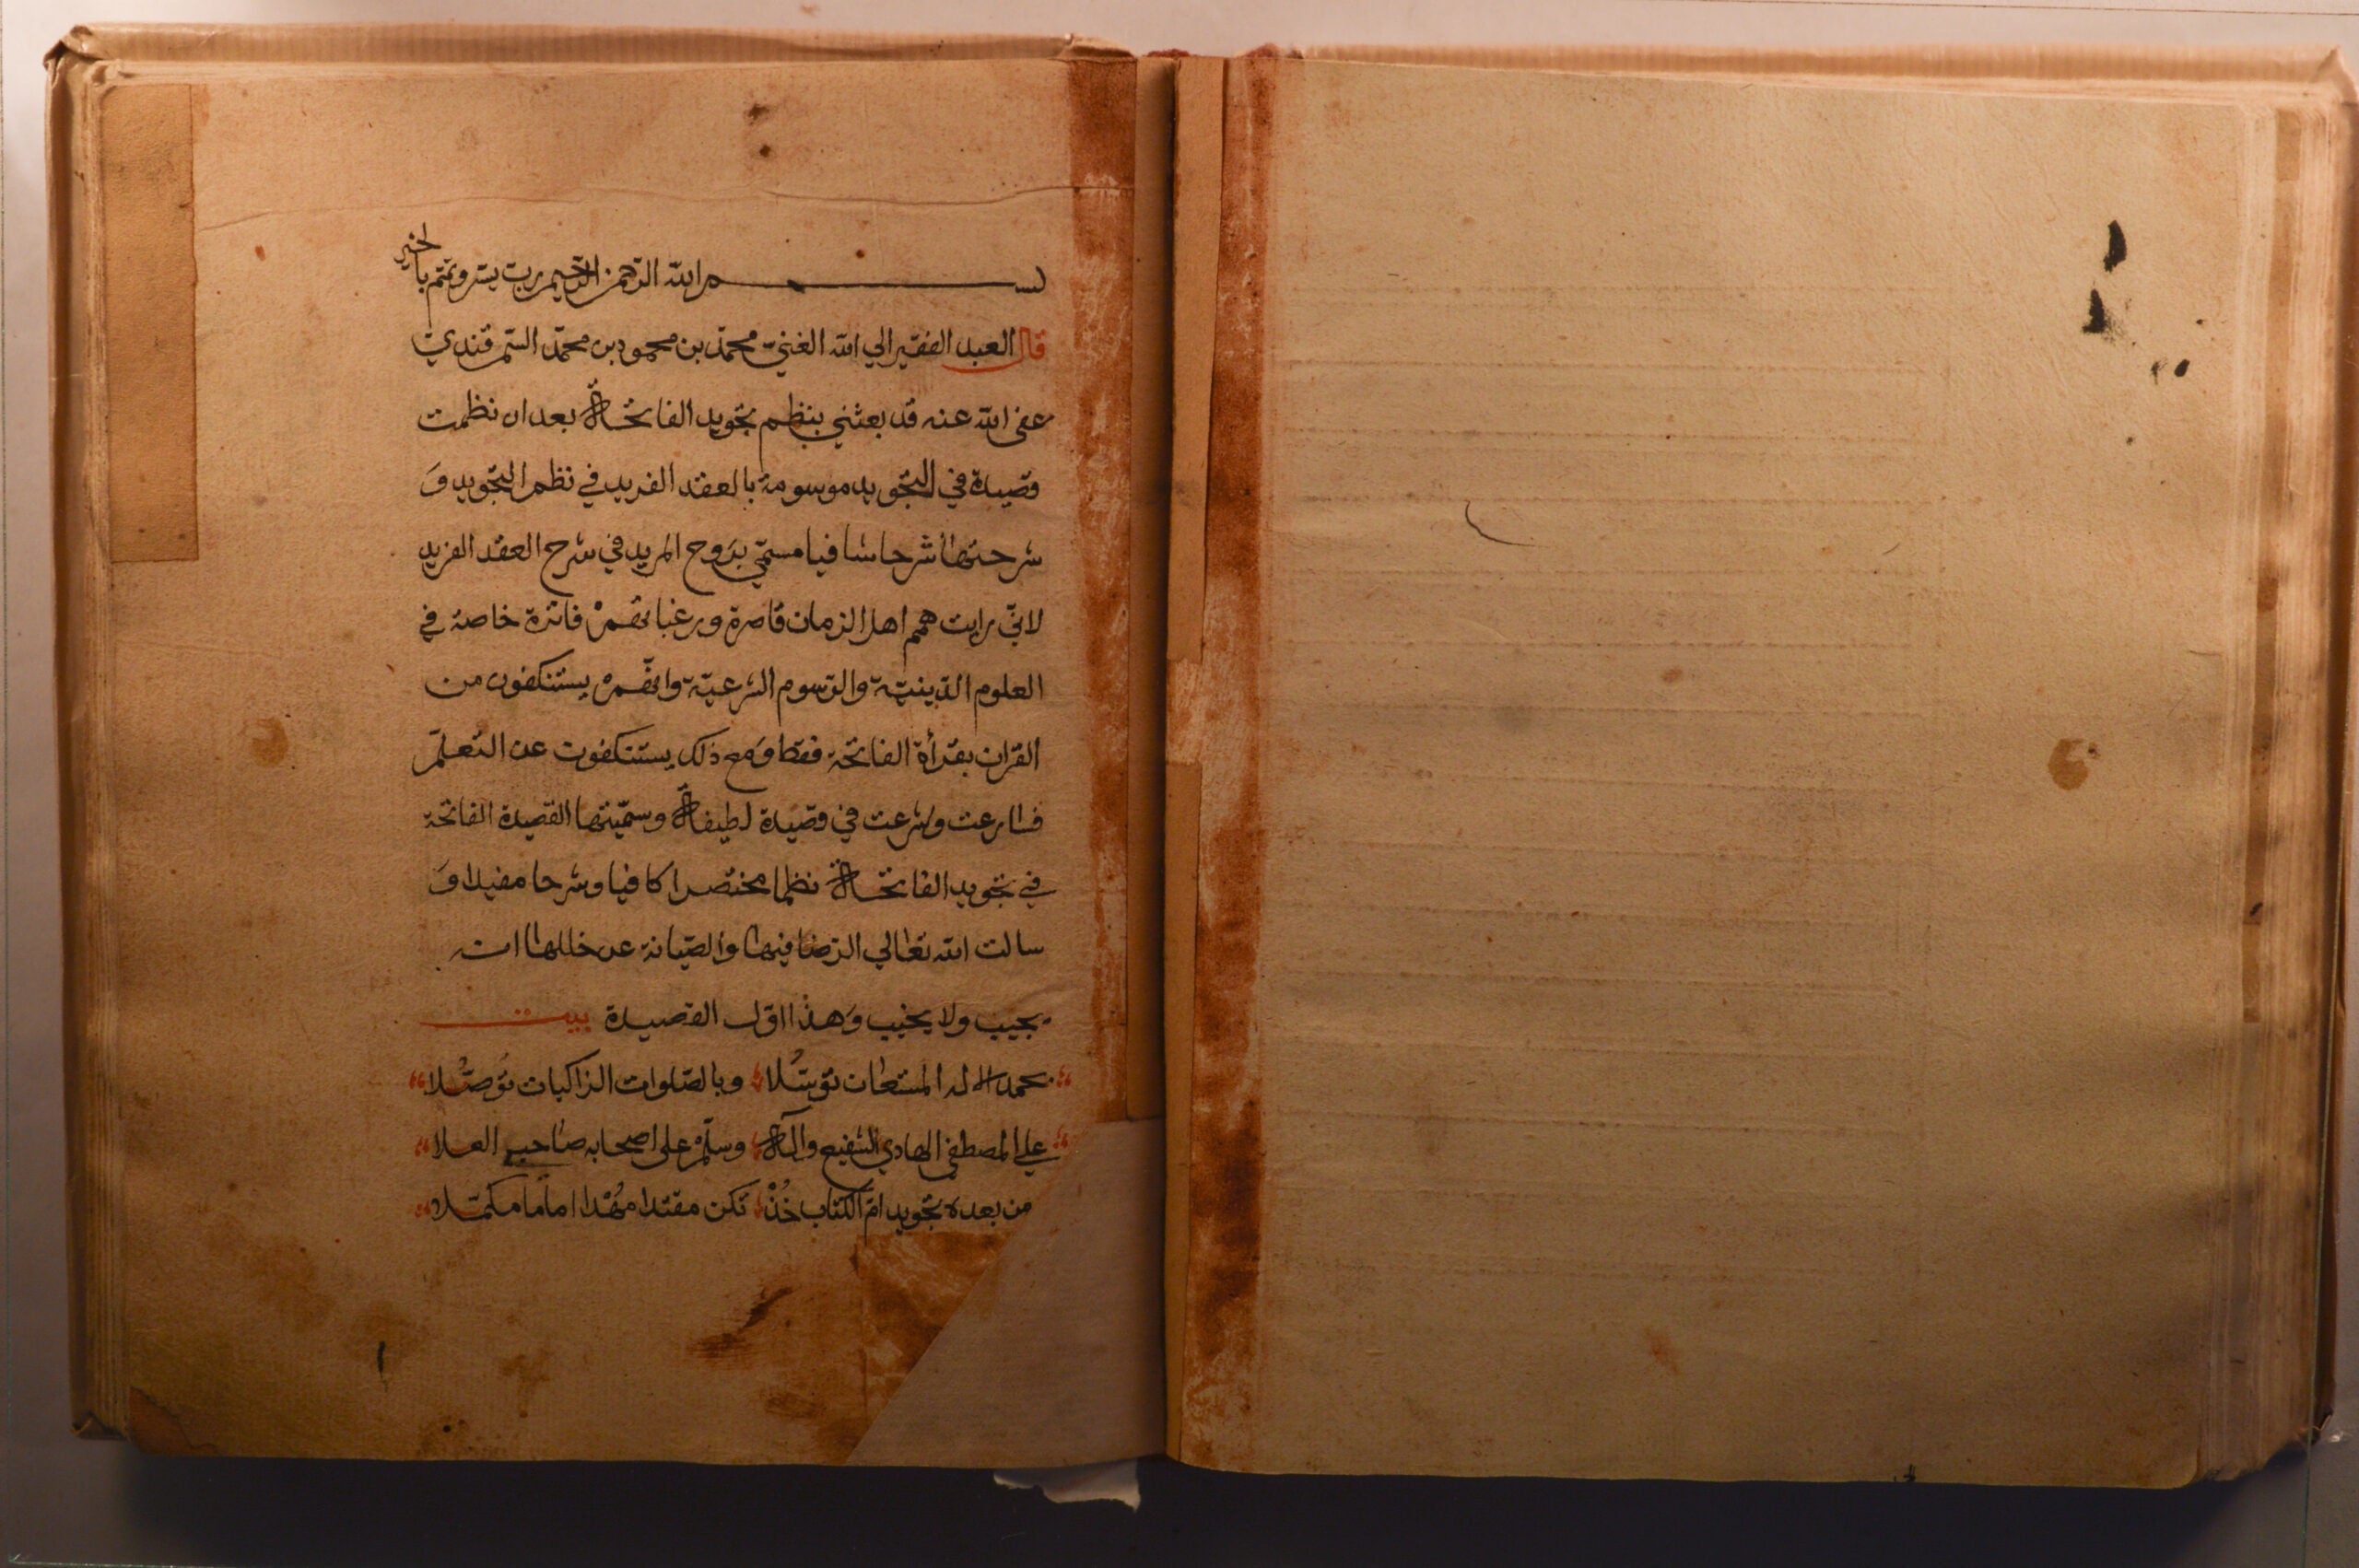 بسم الله الرحمن الرحيم رب يسر وتمم بالخير
قال العبد الفقير الي الله الغني محمد بن محمود بن محمد السمرقندي
عفى الله عنه قد بعثني بنظم تجويد الفاتحة بعد ان نظمت
قصيدة في التجويد موسومة بالعقد الفريد في نظم التجويد وَ
شرحتها شرحا شافيا مسمّي بِرَوح المريد في شرح العقد الفريد
لانّي رايت همم اهل الزمان قاصرة ورغباتهم فاترة خاصة في
العلوم الدّينيّة والرّسوم الشرعيّة وانّهم يستنكفون من
القران بقرأة الفاتحة فقط وَمع ذلك يستنكفون عن التعلّم
فسارعت وشرعت في قصيدة لطيفة وسمّيتها القصيدة الفاتحة
في تجويد الفاتحة نظما مختصرا كافيا وشرحا مفيدا وَ
سالت الله تعالي الرّضا فيها والصّيانة عن خللها انه
يجيب ولا يخيب وَهذا اوّل القصيدة بيت
بحمد الاله المستعان توسُّلا وبالصّلوات الزاكيات توَصُّلا
علي المصطفى الهادي الشفيع وآله وسلّم على اصحابه صاحب العلا
من بعده تجويد امّ الكتاب خُذْ تكن مقتدا مُهْدا اماما مكمّلا